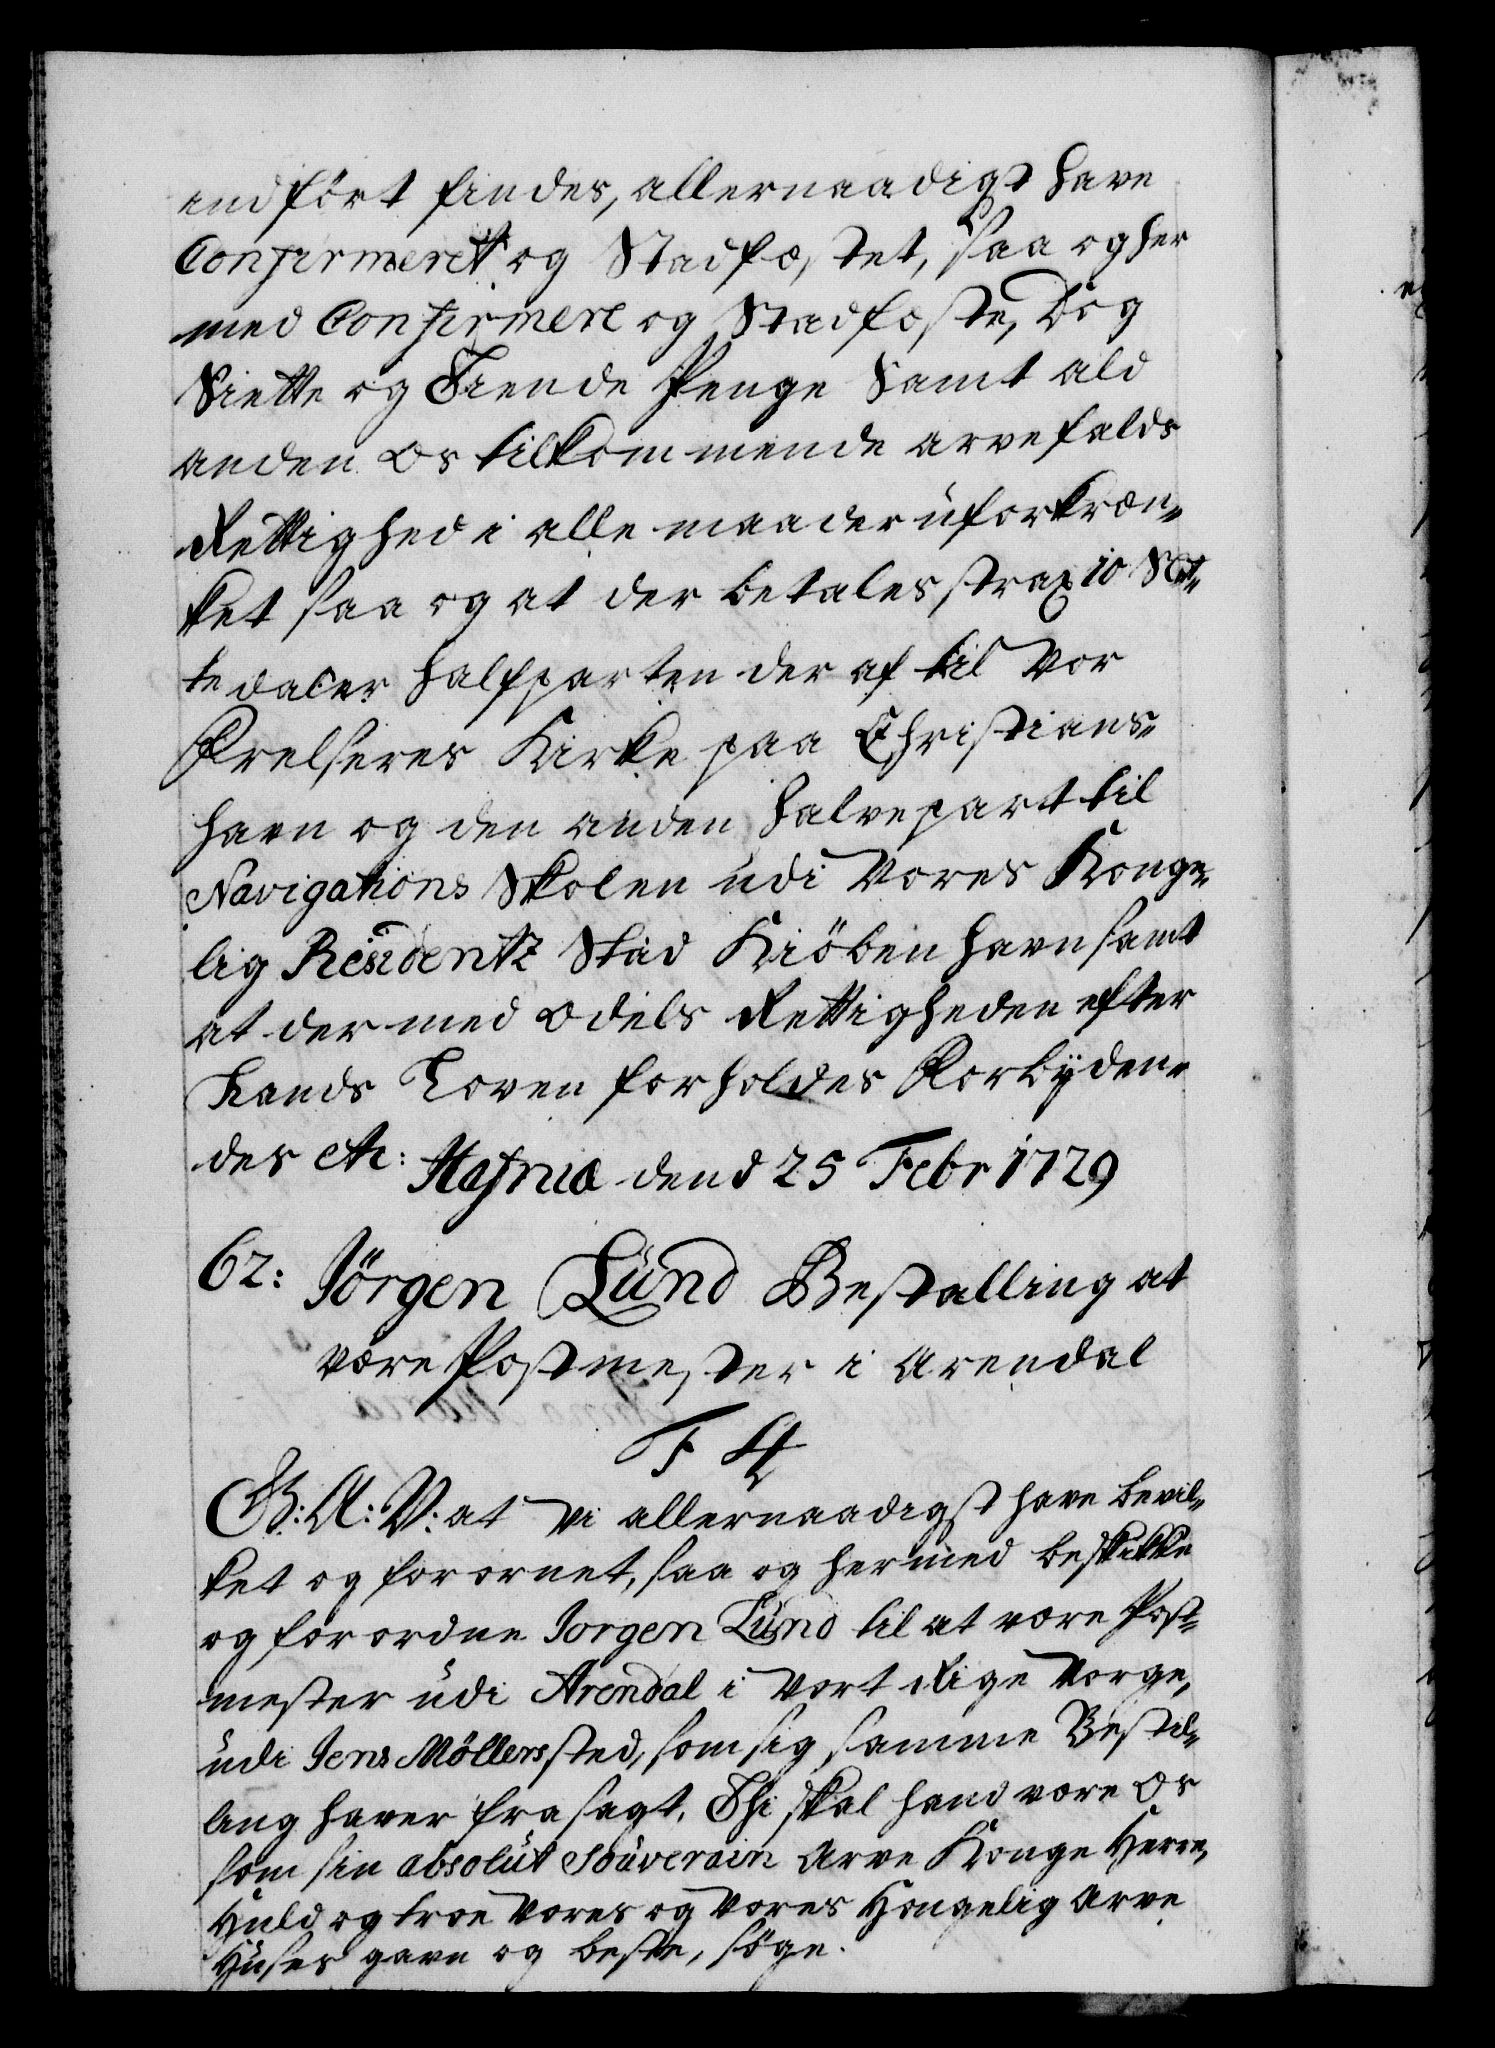 indfört findes, allernaadigst have
Confirmeret og Stadfæstet, saa og her
med Confirmere og Stadfæste, Dog
Siette og Tiende Penge Samt ald
anden os tilkommende arvefalds
Rettighed i alle maader uforkræn„
ket saa og at der betales strax 10 Slet„
te daler halfparten der af til Vor
Frelseres Kirke paa Christians„
havn og den anden halvepart til
Navigations Skolen udi Vores Konge„
lig Residentz Stad Kiöbenhavn samt
at der med odels Rettigheden efter
Lands Loven forholdes Forbyden„
des etc: Hafniæ dend 25 Febr 1729
62: Jörgen Lund Bestalling at
være Postmester i Arendal
F 4
G: A: V: at Vi allernaadigst have bevil„
ket og forornet, saa og hermed beskikke
og forordne Jorgen Lund til at være Post„
mester udi Arendal i Vort Rige Norge,
udi Jens Möllers sted, som sig samme Bestil„
ling haver frasagt. Thi skal hand være os
som sin absolut Souverain Arve Konge Herre,
Huld og troe Vores og Vores Kongelig Arve
Huses gavn og beste, söge.